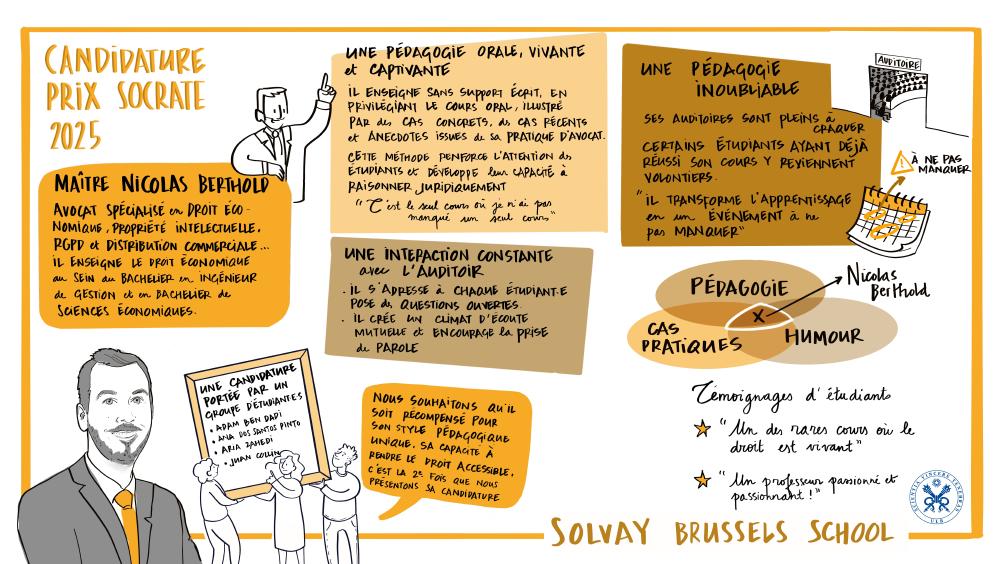 CANDIDATURE
PRIX SOCRATE
2025
MAÎTRE NICOLAS BERTHOLD
AVOCAT SPÉCIALISÉ en DROIT ÉCO-
NOMIQUE, PROPRIÉTÉ INTELECTUELLE,
RGPD et DISTRIBUTION COMMERCIALE...
IL ENSEIGNE LE DROIT ÉCONOMIQUE
au SEIN du BACHELIER en INGÉNIEUR
de GESTION et en BACHELIER de
SCIENCES ÉCONOMIQUES.
UNE PÉDAGOGIE ORALE, VIVANTE
et CAPTIVANTE
IL ENSEIGNE SANS SUPPORT ÉCRIT, EN
PRIVILÉGIANT LE COURS ORAL, ILLUSTRÉ
PAR des CAS CONCRETS, des CAS RÉCENTS
et ANECDOTES ISSUES de sa PRATIQUE D'AVOCAT.
CETTE MÉTHODE RENFORCE L'ATTENTION des
ÉTUDIANTS et DÉVELOPPE leur CAPACITÉ à
RAISONNER JURIDIQUEMENT
"C'est le seul cours où je n'ai pas
manqué un seul cours"
UNE INTERACTION CONSTANTE
avec L'AUDITOIR
. IL S'ADRESSE à CHAQUE ÉTUDIANT.E
POSE des QUESTIONS OUVERTES.
. IL CRÉE UN CLIMAT D'ÉCOUTE
MUTUELLE et ENCOURAGE la PRISE
de PAROLE
UNE PÉDAGOGIE
INOUBLIABLE
SES AUDITOIRES SONT PLEINS à
CRAQUER
CERTAINS ÉTUDIANTS AYANT DÉJÀ
RÉUSSI SON COURS Y REVIENNENT
VOLONTIERS.
"IL TRANSFORME L'APPRENTISSAGE
en un ÉVÉNEMENT à ne
pas MANQUER"
AUDITOIRE
! À NE PAS
MANQUER
PÉDAGOGIE
CAS
PRATIQUES
HUMOUR
X
Nicolas
Berthold
Témoignages d'étudiants
"Un des rares cours où le
droit est vivant"
"Un professeur passionné et
passionnant!"
UNE CANDIDATURE
PORTÉE PAR UN
GROUPE D'ÉTUDIANTS
• ADAM BEN DADI
• ANA DOS SANTOS PINTO
• ARIA ZAHEDI
• JUAN COLLIN
NOUS SOUHAITONS QU'IL
SOIT RÉCOMPENSÉ POUR
SON STYLE PÉDAGOGIQUE
UNIQUE, SA CAPACITÉ À
RENDRE LE DROIT ACCESSIBLE.
C'EST LA 2e FOIS QUE NOUS
PRÉSENTONS SA CANDIDATURE
SOLVAY BRUSSELS SCHOOL
SCIENTIA VINCERE TENEBRAS
ULB